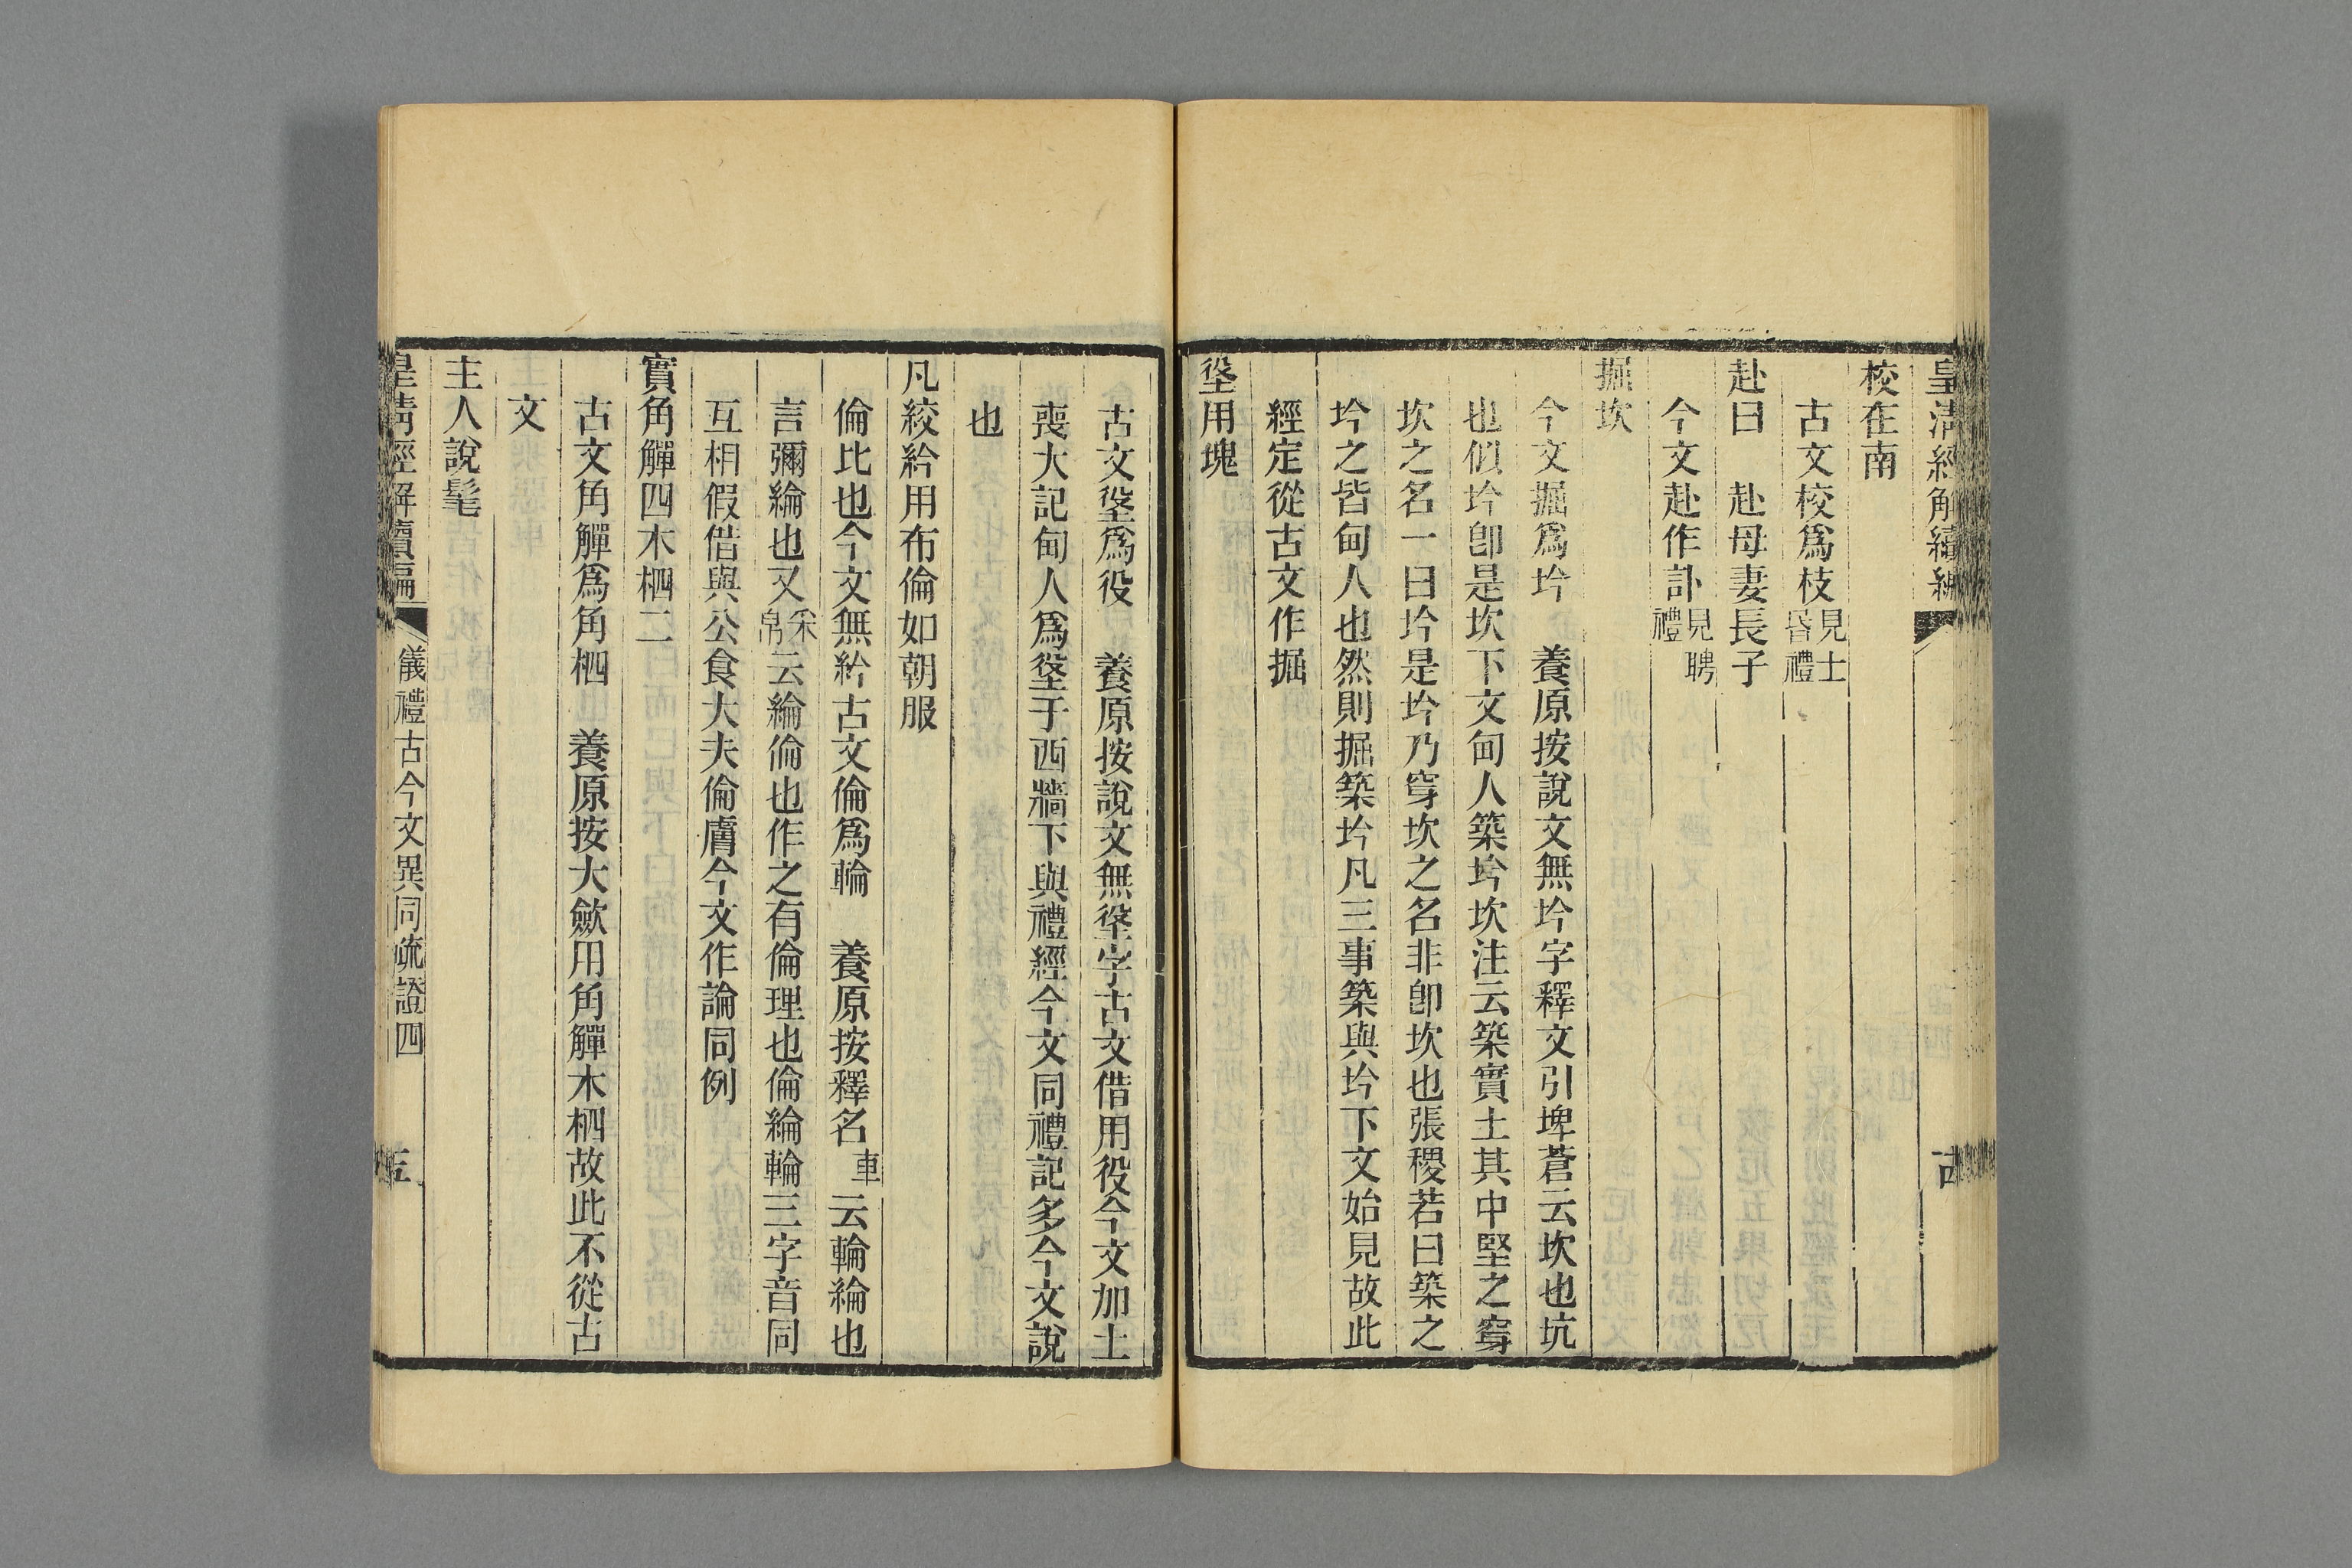 皇清經解續編
校在南
古文校爲枝見士昏禮
赴曰 赴母妻長子
今文赴作訃見聘禮
掘坎
今文掘爲坅 養原按說文無坅字釋文引埤蒼云坎也坑
也似坅卽是坎下文甸人築坅坎注云築實土其中堅之穿
坎之名一曰坅是坅乃穿坎之名非卽坎也張稷若曰築之
坅之皆甸人也然則掘築坅凡三事築與坅下文始見故此
經定從古文作掘
垼用塊
古文垼爲役 養原按說文無垼字古文借用役今文加土
喪大記甸人爲垼于西牆下與禮經今文同禮記多今文說
也
凡絞紟用布倫如朝服
倫比也今文無紟古文倫爲輪 養原按釋名車云輪綸也
言彌綸也又釆帛云綸倫也作之有倫理也倫綸輪三字音同
互相假借與公食大夫倫膚今文作論同例
實角觶四木柶二
古文角觶爲角柶 養原按大斂用角觶木柶故此不從古
文
主人說髦
皇清經解續編
儀禮古今文異同疏證四